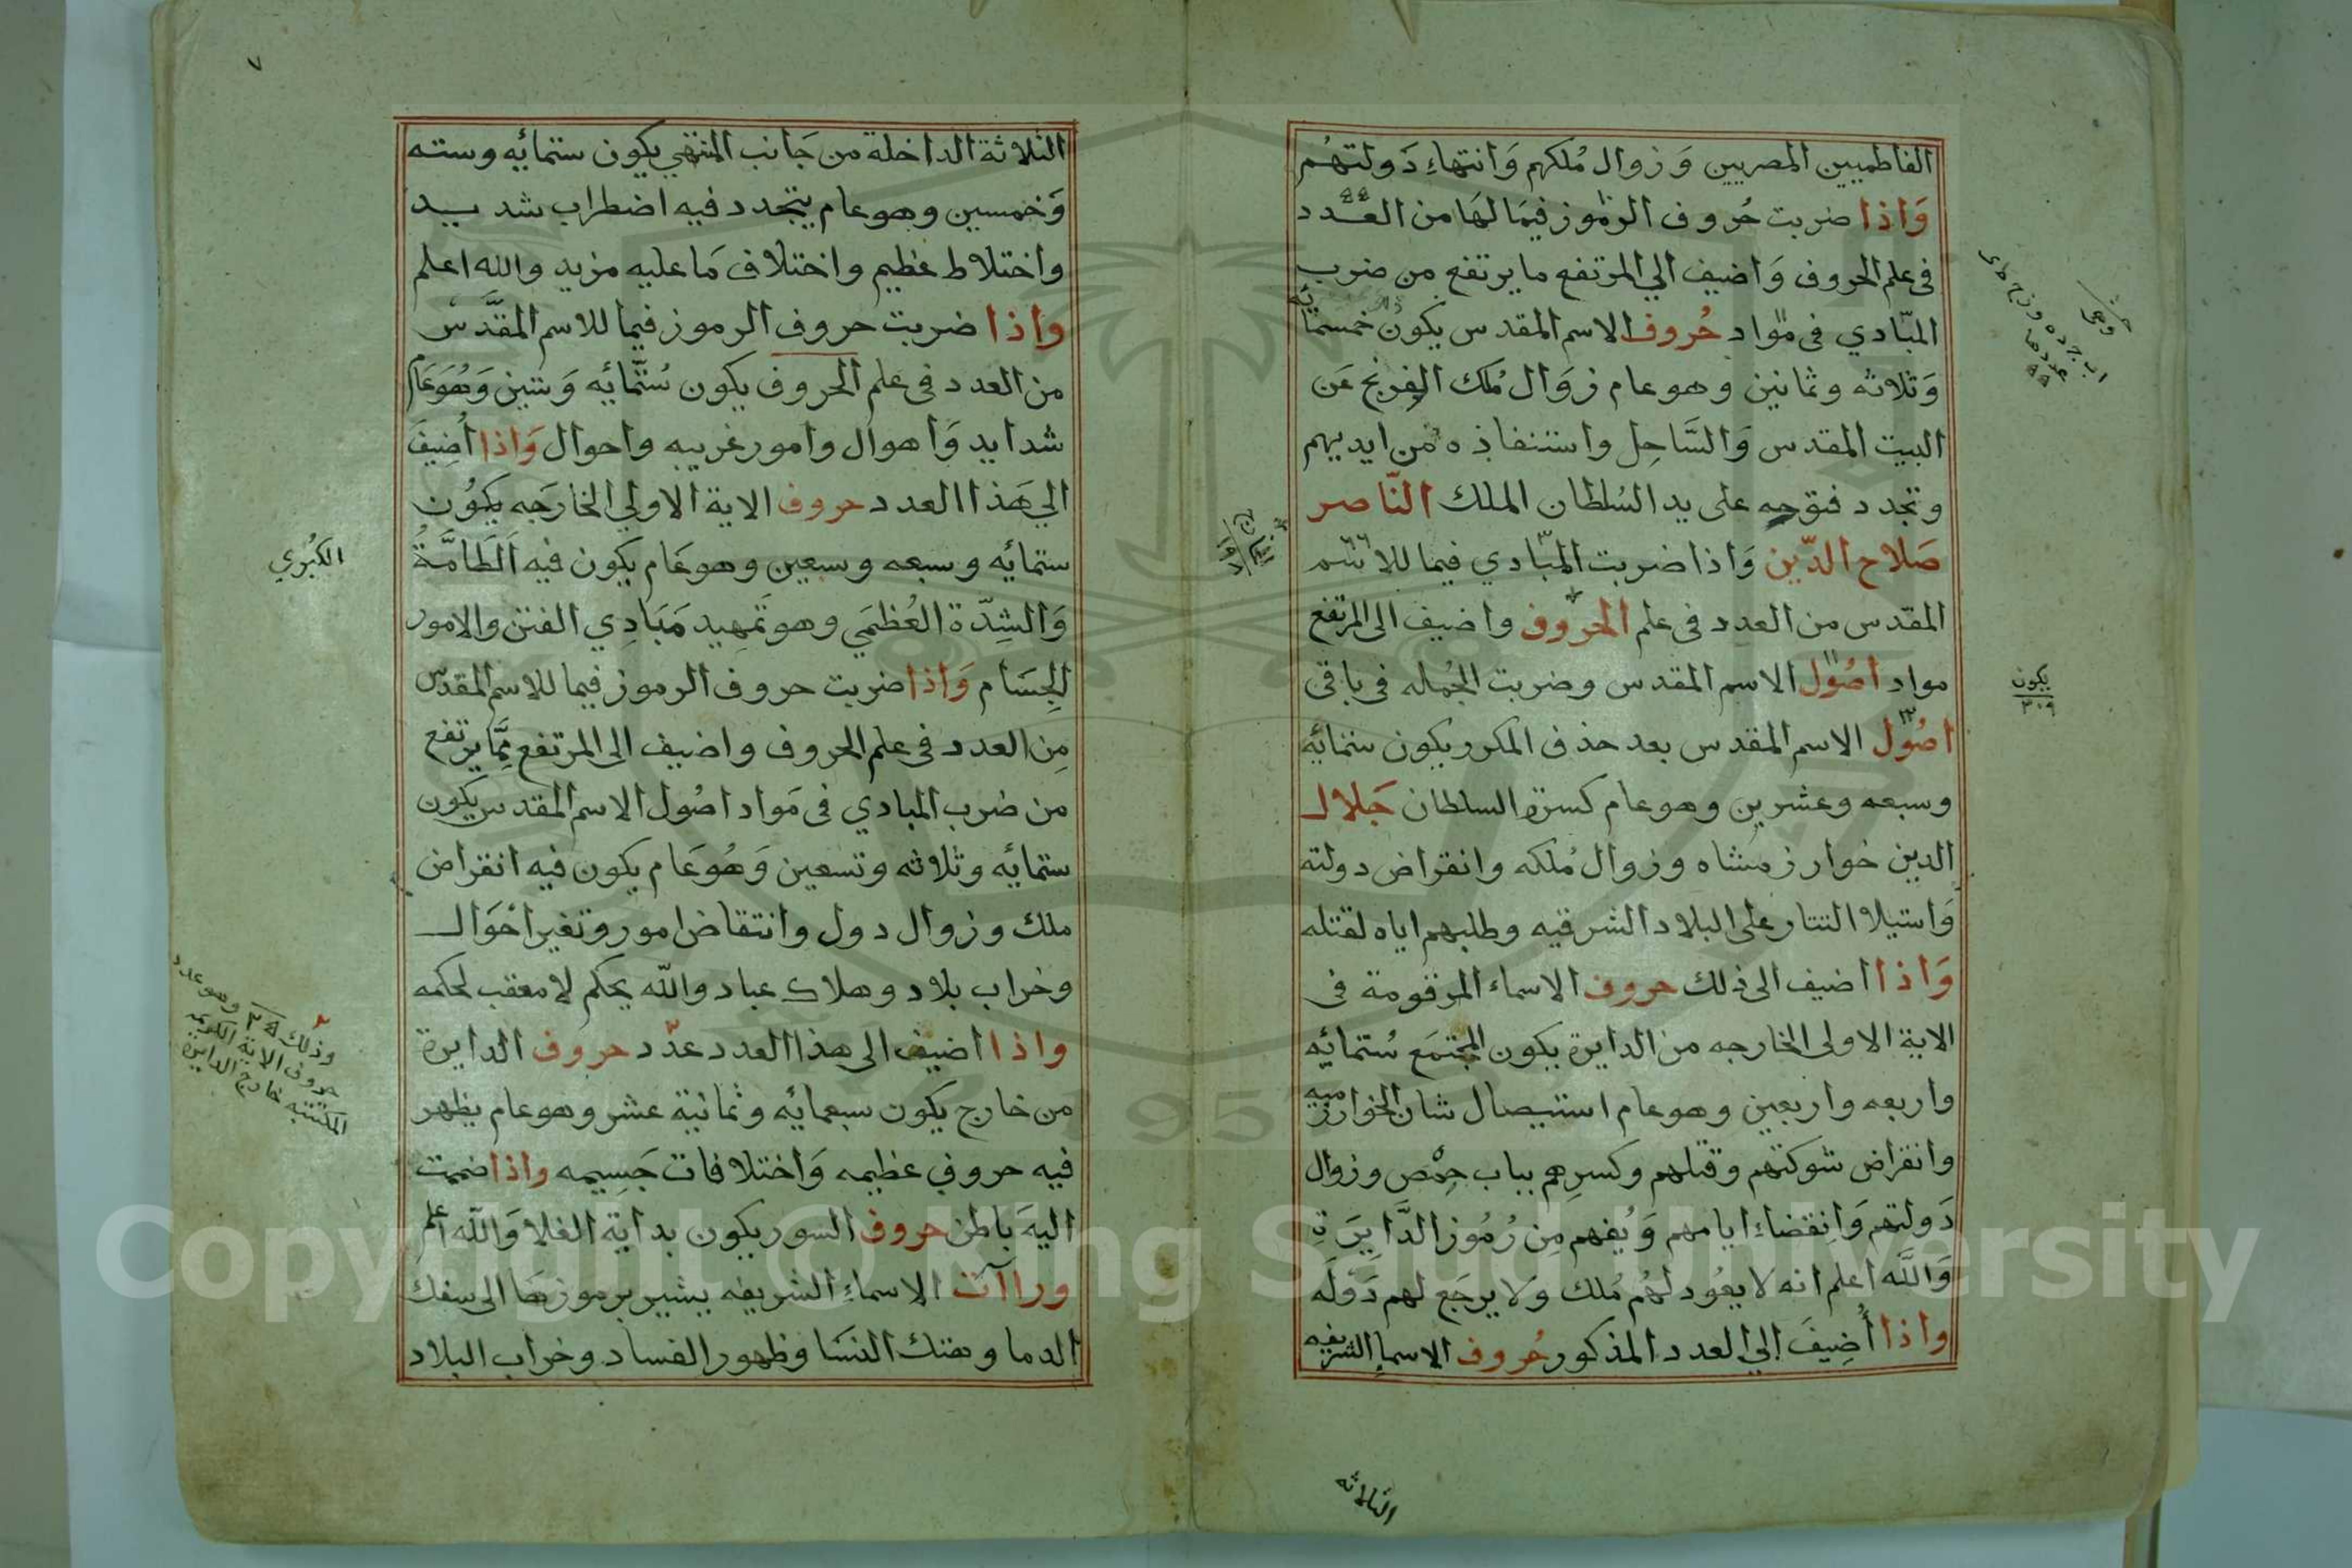 الفاطميين المصريين وَزوال مُلكهم وَانتهاءِ دَولتهُم
وَاذا ضربت حُروف الرموز فيمَا لهَا من العدد
فى علم الحروف وَاضيف الي المرتفع ما يرتفع من ضرب
المبّادي فى موّاد حُروف الاسم المقدس يكون خمسمائة
وَثلاثه وثمانين وهو عام زوَال مُلك الفرنج عَن
البيت المقدس وَالسَّاحِل واستنفاذه من ايديهم
وتجدد فتوحه على يد السُلطان الملك النّاصر
صَلاح الدّين وَاذا ضربت المبّادي فيما للاسم
المقدس من العدد فى علم الحروف واضيف الى المرتفع
مواد اصُول الاسم المقدس وضربت الجُمله فى باقى
اصُول الاسم المقدس بعد حذف المكرر يكون ستمائه
وسبعه وعشرين وهو عام كسرة السلطان جَلال
الدين خوارزمشاه وزوال مُلكه وانقراض دولته
وَاستيلا التتار على البلاد الشرقيه وطلبهم اياه لقتله
وَاذا اضيف الى ذلك حروف الاسماء المرقومة فى
الاية الاولى الخارجه من الدايرة يكون المجتمَع سُتمائه
واربعه واربعين وهو عام استيصال شان الخوارزميه
وانقراض شوكتهم وقتلهم وكسرهم بباب حِمْص وزوال
دَولتهم وَانِقضاءِ ايامهم وَيُفهم مِن رُمُوز الدَّايرَة
وَاللَّه اعلم انه لا يعُود لهُم مُلك وَلا يرجَع لهم دَوْلَه
واذا أُضِيفَ إلي العدد المذكور حُروف الاسماءِ الشريفه
الثلاثه
يكون
٣٠٩
٧
الثلاثة الداخلة من جَانب المنتهي يكون ستمائه وسته
وَخمسين وهو عام يتجدد فيه اضطراب شديد
واختلاط عظيم واختلاف مَا عليه مزيد والله اعلم
واذا ضربت حروف الرموز فيما للاسم المقدَّس
من العدد فى علم الحروف يكون سُتمائه وَستين وَهُوَ عَام
شدايد وَاهوال وامور غريبه واحوال وَاذا أُضِيفَ
الي هَذا العدد حروف الاية الاولي الخارَجه يكوُن
ستمائه وسبعه وسبعين وهو عَام يكون فيه اَلطَامَّةُ
الكُبْري
وَالشِدّة العُظمَي وهو تَمهِيد مَبَادِي الفتن والامور
الجِسَام وَاذا ضربت حروف الرموز فيما للاسم المقدس
مِن العدد فى علم الحروف واضيف الى المرتفع مِمَّا يرتفع
من ضرب المبادي فى مَواد اصُول الاسم المقدس يكون
ستمائه وثلاثه وتسعين وَهُوَ عَام يكون فيه انقراض
ملك وزوال دول وانتقاض امور وتغير احْوَال
وخراب بلاد وهلاك عباد واللّه يحكم لا معقب لحكمه
واذا اضيف الى هذا العدد عدّد حروف الدايرة
من خارج يكون سبعمائه وثمانية عشر وهو عام يظهر
فيه حروفي عظيمه وَاختلافات جَسِيمه واذا ضممت
اليهَ باطن حروف السور يكون بداية الغلا وَاللّه اعلم
ورا آت الاسماءِ الشريفه يشير برموزهَا الى سفك
الدما وهتك النسَا وظهور الفساد وخراب البلاد
وذلك ٢٥ وهو عدد
حروف الاية الكريمه
المكتتبه خارج الدايرة